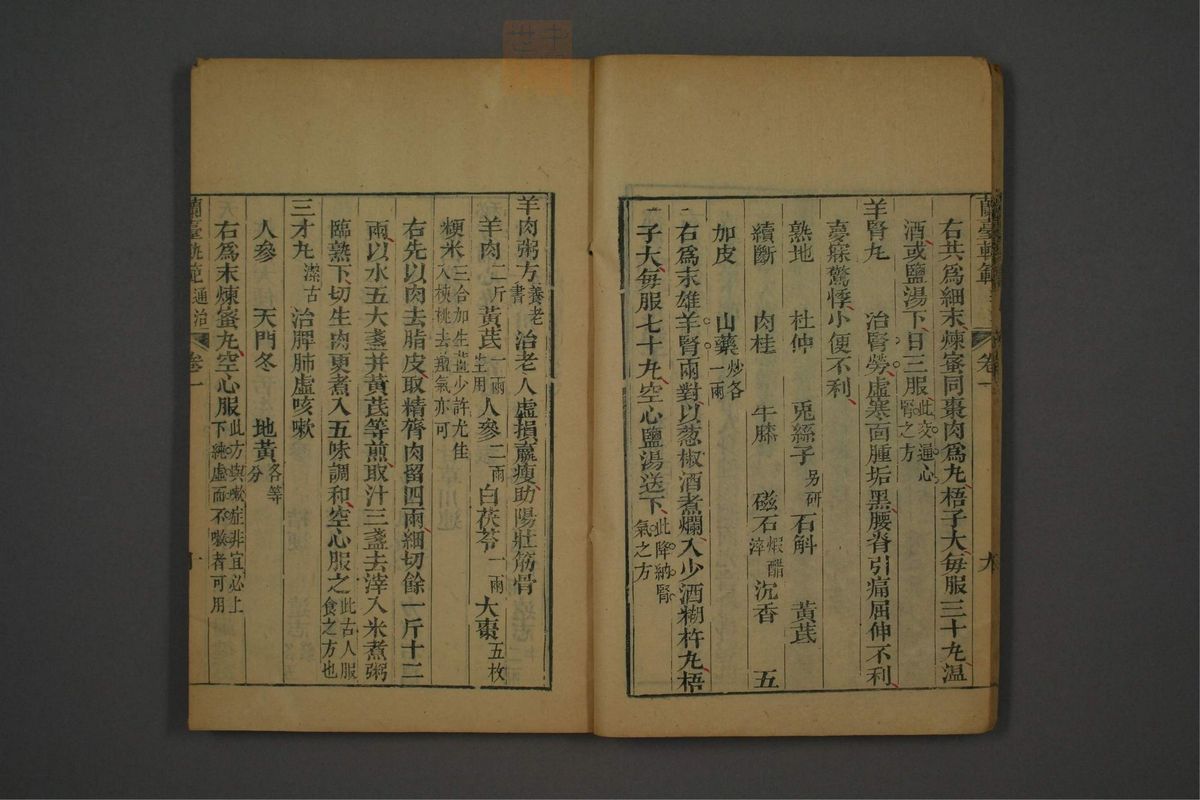 蘭臺軌範
卷一
九
右共爲細末煉蜜同棗肉爲丸梧子大每服三十丸溫
酒或鹽湯下日三服此交通心腎之方
羊腎丸 治腎勞虛寒面腫垢黑腰脊引痛屈伸不利
夢寐驚悸小便不利
熟地 杜仲 兎絲子另研 石斛 黃芪
續斷 肉桂 牛膝 磁石煆醋淬 沉香 五
加皮 山藥炒各一兩
右爲末雄羊腎兩對以葱椒酒煮爛入少酒糊杵丸梧
子大每服七十丸空心鹽湯送下此降納腎氣之方
羊肉粥方養老書 治老人虛損羸瘦助陽壯筋骨
羊肉二斤 黃芪一兩生用 人參二兩 白茯苓一兩 大棗五枚
粳米三合加生薑少許尤佳入核桃去羶氣亦可
右先以肉去脂皮取精膂肉留四兩細切餘一斤十二
兩以水五大盞并黃芪等煎取汁三盞去滓入米煮粥
臨熟下切生肉更煮入五味調和空心服之此古人服食之方也
三才丸潔古 治脾肺虛咳嗽
人參 天門冬 地黃各等分
右爲末煉蜜丸空心服此方與嗽症非宜必上下純虛而不嗽者可用
蘭臺軌範
通治
卷一
十